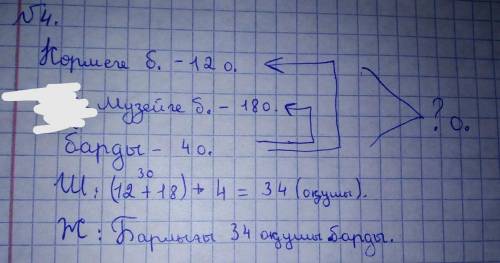 №4.
Көрмеге б. - 12 о.
Музейге б. - 18 о.
? о.
Барды - 4 о.
30
Ш: (12 + 18) + 4 = 34 (оқушы).
Ж: Барлығы 34 оқушы барды.